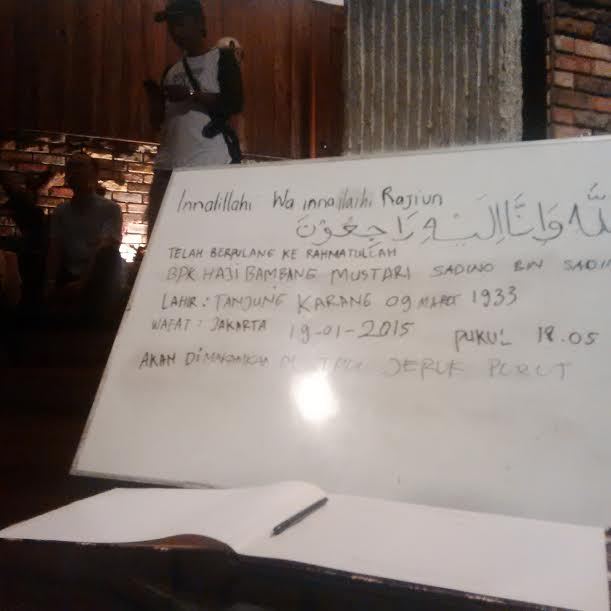 Innalillahi Wa innailaihi Rajiun
للّٰهِ وَاِنَّااِلَيْهِ رَاجِعُوْنَ
TELAH BERPULANG KE RAHMATULLAH
BPK HAJI BAMBANG MUSTARI SADINO BIN
LAHIR : TANJUNG KARANG 09 MARET 1933
WAFAT : JAKARTA 19-01-2015 PUKUL 18.05
AKAN DIMAKAMKAN DI TPU JERUK PURUT